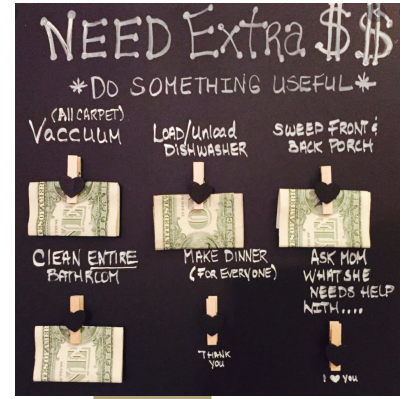 NEED Extra $$
*DO SOMETHING USEFUL*
(All CARPET)
VACCUUM
LOAD/UNload
DISHWASHER
SWEEP FRONT &
BACK PORCH
CLEAN ENTIRE
BATHROOM
MAKE DINNER
(FOR EVERYONE)
THANK
YOU
ASK MOM
WHAT SHE
NEEDS HELP
WITH....
I ♥ YOU